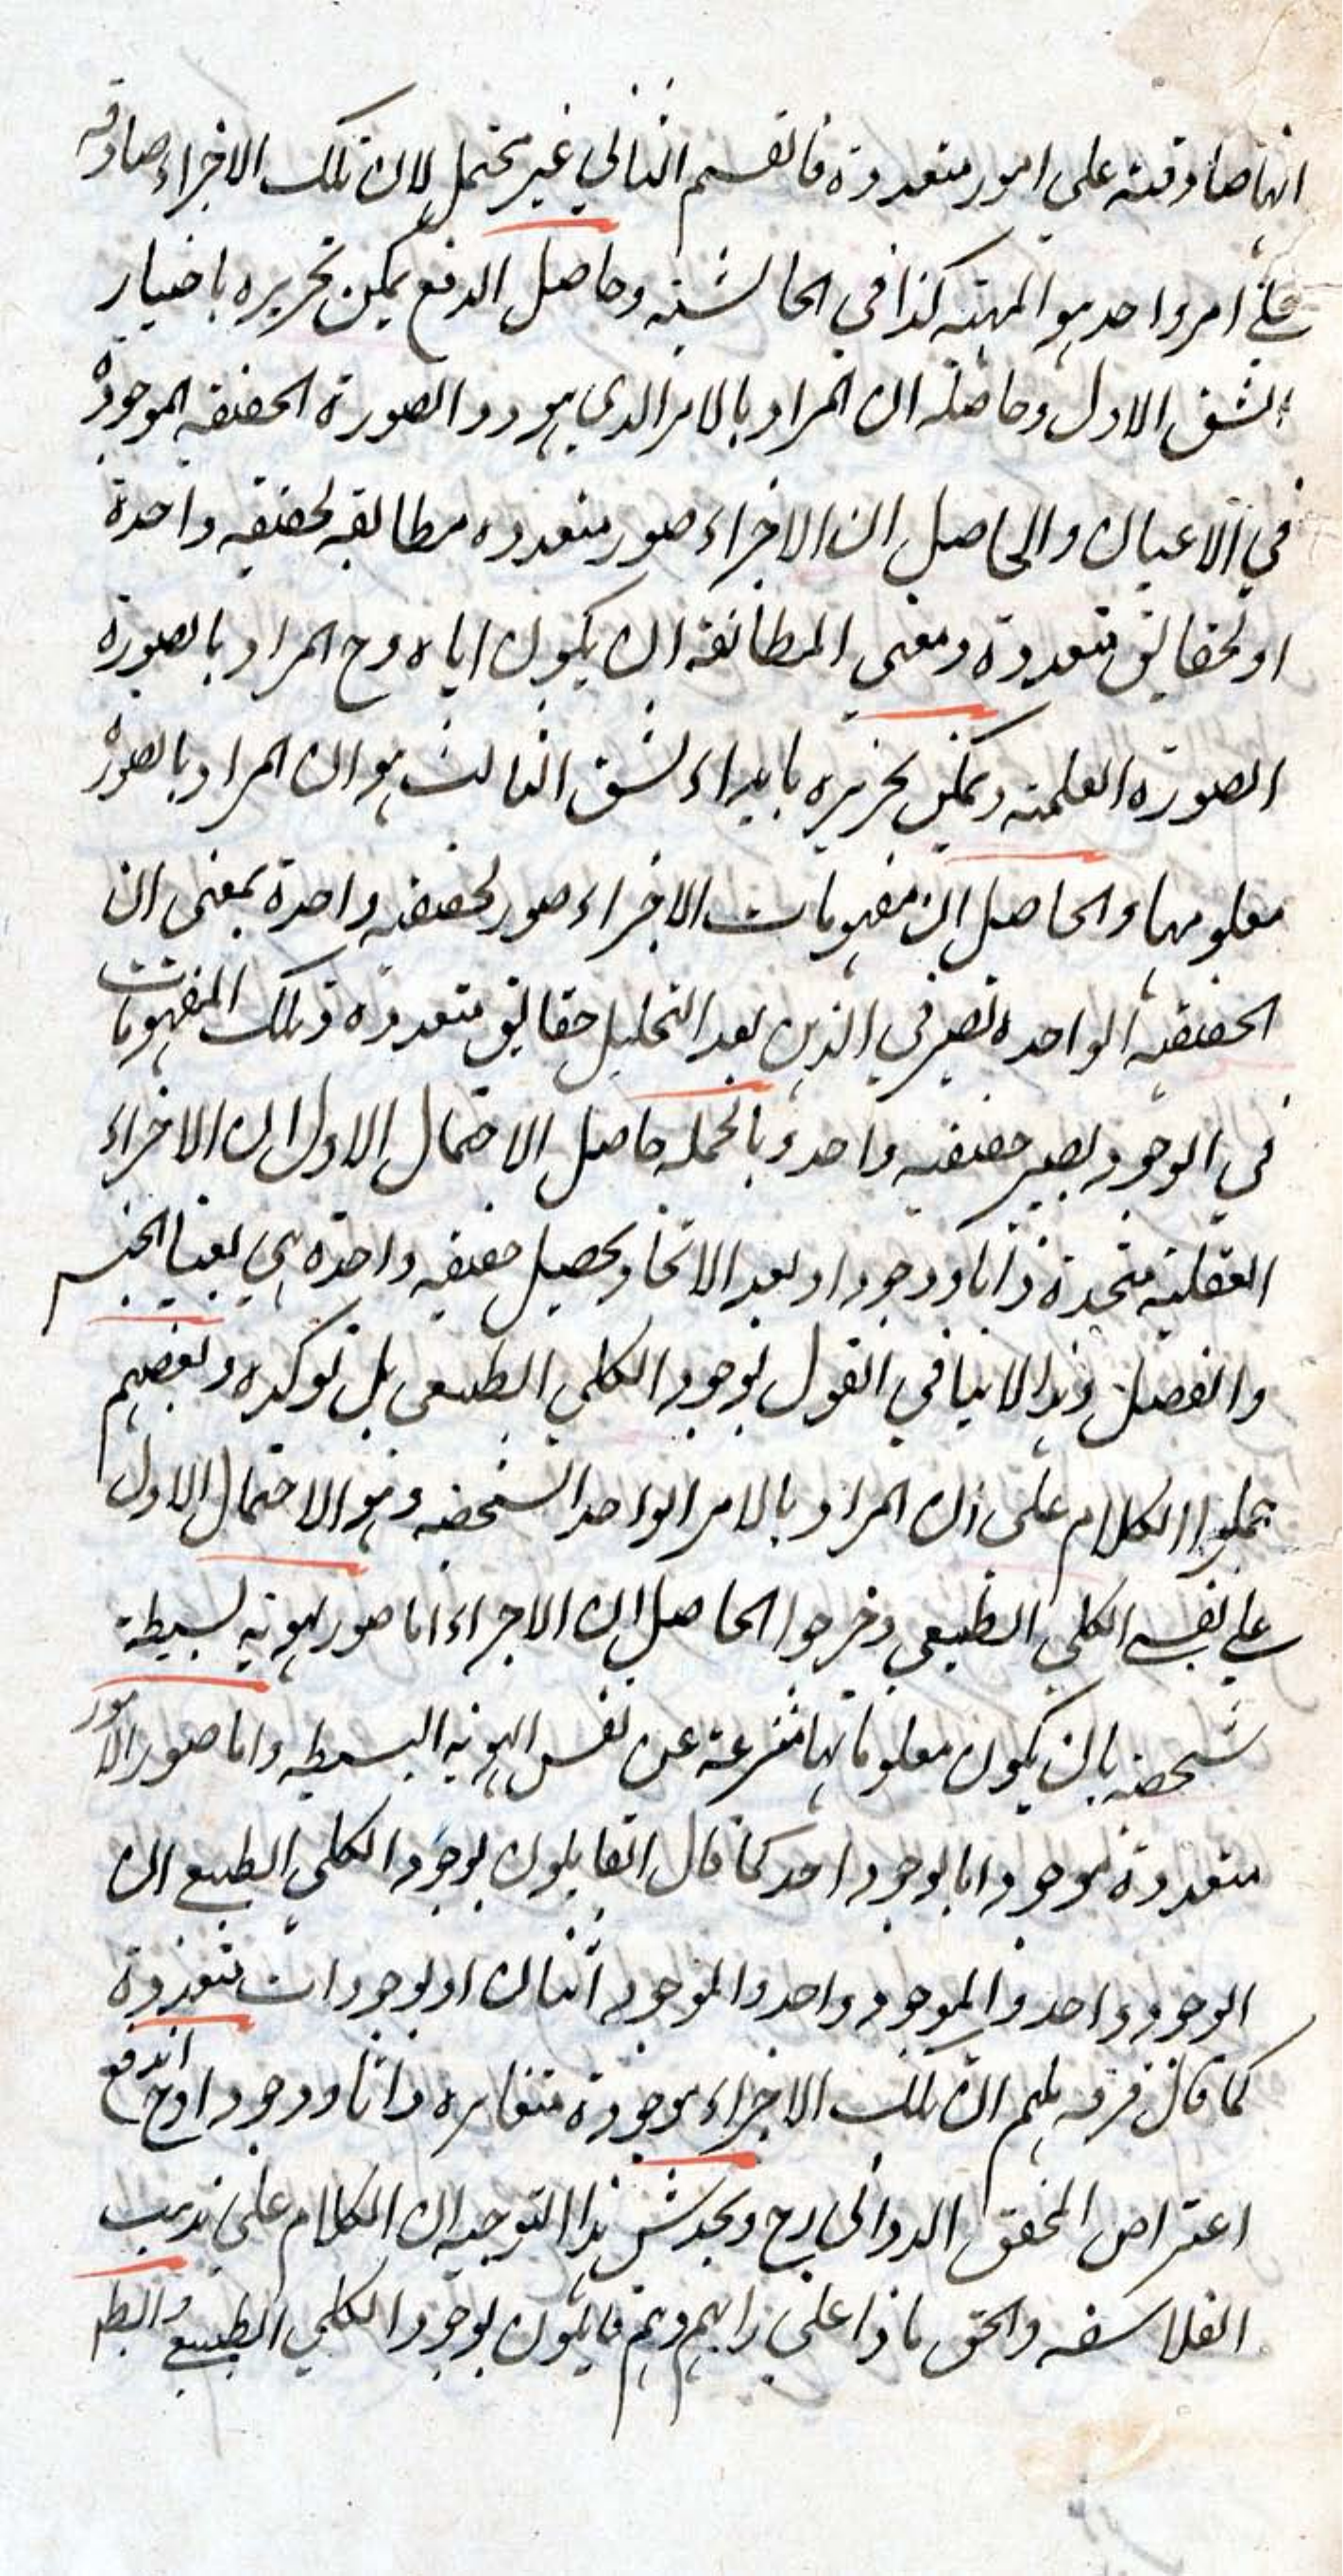 انها صادقة على امور متعددة فالقسم الثاني غير محتمل لان تلك الاجزاء صادقه
على امر واحد هو المهية كذا في الحاشية وحاصل الدفع يمكن تحريره باختيار
الشق الاول وحاصله ان المراد بالامر الذي هو ذو الصورة الحقيقة الموجودة
في الاعيان والحاصل ان الاجزاء صور متعدده مطابقه لحقيقه واحدة
او لحقايق متعددة ومعنى المطابقة ان يكون اياه وح المراد بالصورة
الصورة العلمية ويمكن تحريره بابداء لشق الثالث هو ان المراد بالصورة
معلومها والحاصل ان مفهومات الاجزاء صور لحقيقه واحدة بمعنى ان
الحقيقة الواحده تصير في الذهن بعد التحليل حقايق متعددة وتلك المفهومات
في الوجود تصير حقيقيه واحد وبالجمله حاصل الاحتمال الاول ان الاجزاء
العقلية متحدة ذاتا ووجودا وبعد الاتحاد يحصل حقيقه واحدة هي بعينها الجنس
والفصل وهذا لا ينافي القول بوجود الكلي الطبعي بل توكده وبعضهم
حملوا الكلام على ان المراد بالامر الواحد الشخصه وهو الاحتمال الاول
على نفي الكلي الطبيعي وخرجوا الحاصل ان الاجزاء اما صور لهوية بسيطة
شخصيه بان يكون معلوماتها منتزعة عن نفس الهوية البسيطه واما صور الامور
متعددة موجود اما بوجود احد كما قال القايلون بوجود الكلي الطبيع ان
الوجود واحد والموجود واحد والموجود اثنان او بوجودات متعددة
كما قال فرقه منهم ان تلك الاجزاء موجودة متغايره ذاتا ووجودا وح اندفع
اعتراص المحقق الدواني رح ويخدش هذا التوجيه ان الكلام على مذهب
الفلاسفه والحق ماذا على رايهم وهم قايلون بوجود الكلي الطبيع والبط